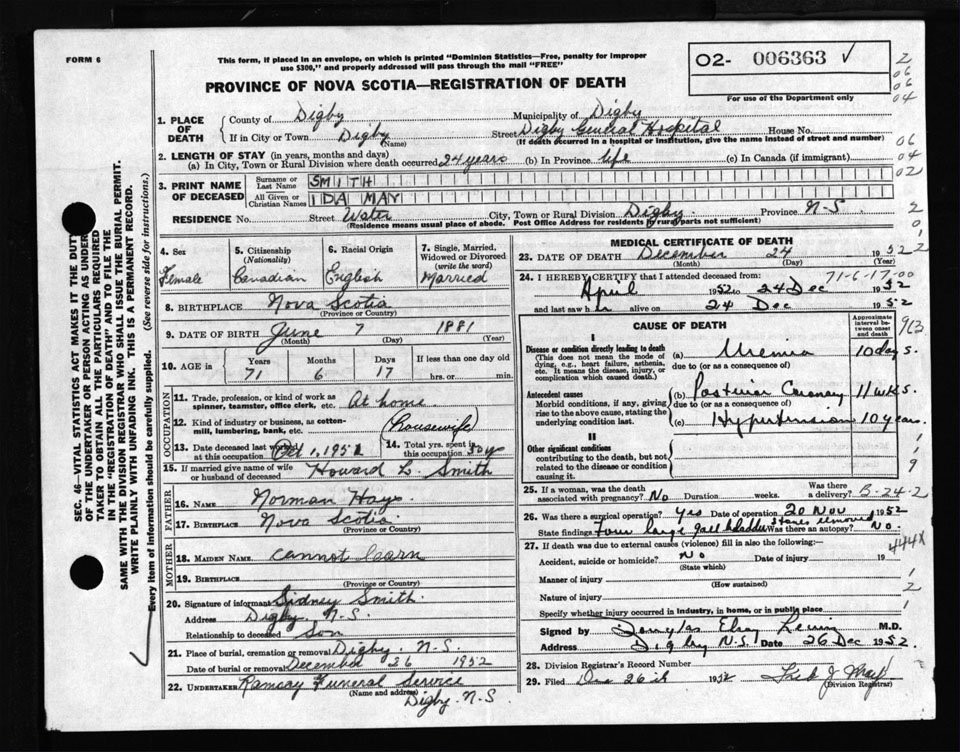 FORM 6
This form, if placed in an envelope, on which is printed "Dominion Statistics—Free, penalty for improper
use $300," and properly addressed will pass through the mail "FREE"
PROVINCE OF NOVA SCOTIA—REGISTRATION OF DEATH
O2- 006363 √
For use of the Department only
2
06
06
04
06
04
02
2
0
1. PLACE OF DEATH
County of Digby Municipality of Digby
If in City or Town Digby Street Digby General Hospital House No.
(Name) (If death occurred in a hospital or institution, give the name instead of street and number)
2. LENGTH OF STAY (in years, months and days)
(a) In City, Town or Rural Division where death occurred 24 years (b) In Province life (c) In Canada (if immigrant)
3. PRINT NAME OF DECEASED
Surname or Last Name SMITH
All Given or Christian Names IDA MAY
RESIDENCE No. Street Water City, Town or Rural Division Digby Province N-S
(Residence means usual place of abode. Post Office Address for residents of rural parts not sufficient)
4. Sex Female
5. Citizenship (Nationality) Canadian
6. Racial Origin English
7. Single, Married, Widowed or Divorced (write the word) Married
8. BIRTHPLACE Nova Scotia
(Province or Country)
9. DATE OF BIRTH June 7 1881
(Month) (Day) (Year)
10. AGE in Years 71 Months 6 Days 17 If less than one day old hrs. or min.
OCCUPATION
11. Trade, profession, or kind of work as spinner, teamster, office clerk, etc. At home
12. Kind of industry or business, as cotton-mill, lumbering, bank, etc. (Housewife)
13. Date deceased last worked at this occupation Oct 1, 1952
14. Total yrs. spent in this occupation 30y
15. If married give name of wife or husband of deceased Howard L. Smith
FATHER
16. NAME Norman Hays
17. BIRTHPLACE Nova Scotia
(Province or Country)
MOTHER
18. MAIDEN NAME cannot learn
19. BIRTHPLACE
(Province or Country)
20. Signature of informant Sidney Smith.
Address Digby. N-S.
Relationship to deceased Son
21. Place of burial, cremation or removal Digby. N-S.
Date of burial or removal December 26 1952
22. UNDERTAKER Ramsay Funeral Service
(Name and address)
Digby. N-S
MEDICAL CERTIFICATE OF DEATH
23. DATE OF DEATH December 24 1952
(Month) (Day) (Year)
71-6-17-00
24. I HEREBY CERTIFY that I attended deceased from:
April 1952 to 24 Dec 1952
and last saw her alive on 24 Dec 1952
CAUSE OF DEATH
Approximate interval between onset and death
I
Disease or condition directly leading to death
(This does not mean the mode of dying, e.g., heart failure, asthenia, etc. It means the disease, injury, or complication which caused death.)
(a) Uremia 10 days.
due to (or as a consequence of)
Antecedent causes
Morbid conditions, if any, giving rise to the above cause, stating the underlying condition last.
(b) Posterior Coronary 11 wks.
due to (or as a consequence of)
(c) Hypertension 10 years.
II
Other significant conditions
contributing to the death, but not related to the disease or condition causing it.
25. If a woman, was the death associated with pregnancy? No Duration weeks. Was there a delivery? B-24-2
26. Was there a surgical operation? yes Date of operation 20 Nov 1952
State findings Four large gall bladder stones removed Was there an autopsy? No.
27. If death was due to external causes (violence) fill in also the following:— 444X
Accident, suicide or homicide? No Date of injury 19
(State which)
Manner of injury
(How sustained)
Nature of injury
Specify whether injury occurred in industry, in home, or in public place
Signed by M.D.
Address Digby N.S. Date 26 Dec 1952
28. Division Registrar's Record Number
29. Filed Dec 26th 1952
(Division Registrar)
SEC. 46—VITAL STATISTICS ACT MAKES IT THE DUTY
OF THE UNDERTAKER OR PERSON ACTING AS UNDERTAKER
TO OBTAIN ALL THE PARTICULARS REQUIRED
IN THE "REGISTRATION OF DEATH" AND TO FILE THE
SAME WITH THE DIVISION REGISTRAR WHO SHALL ISSUE THE BURIAL PERMIT.
WRITE PLAINLY WITH UNFADING INK. THIS IS A PERMANENT RECORD.
Every item of information should be carefully supplied. (See reverse side for instructions.)